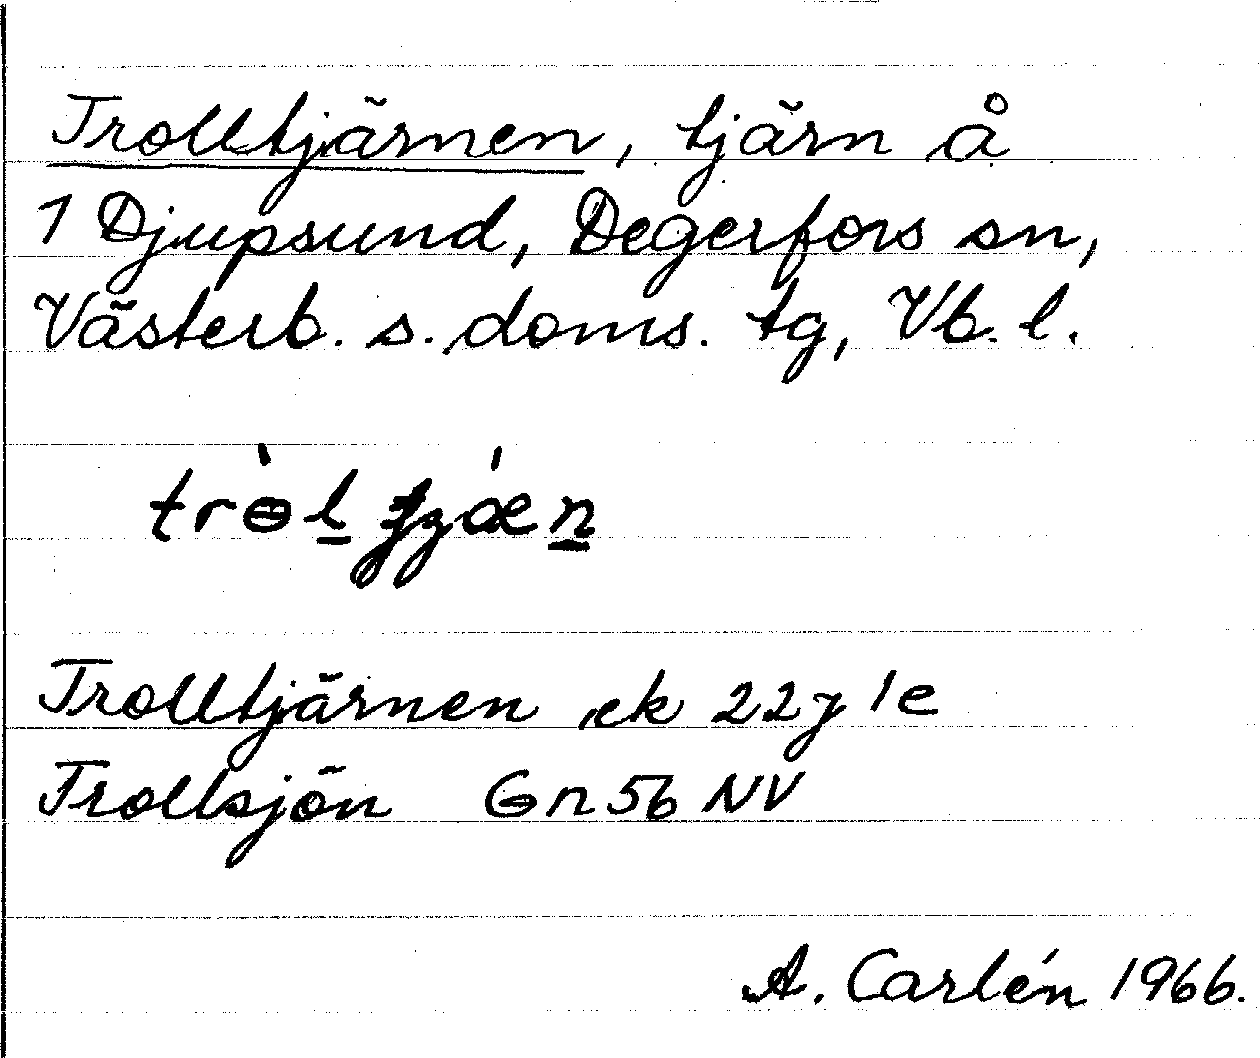 Trolltjärnen, tjärn å
1 Djupsund, Degerfors sn,
Västerb. s. doms. tg, Vb. l.
Trolltjärnen ek 22 J 1e
Trollsjön Gn 56 NV
A. Carlén 1966.